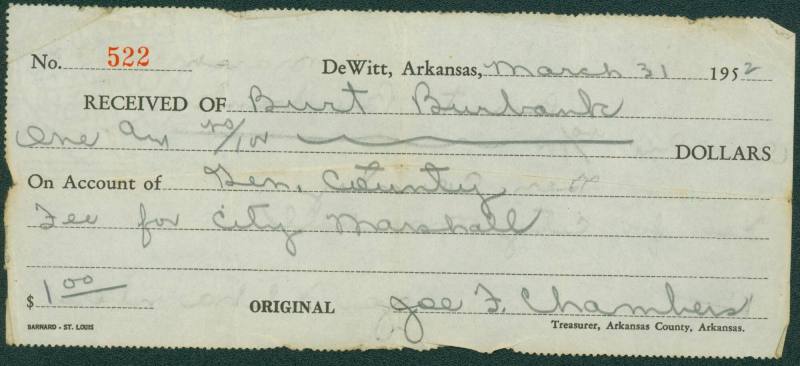 No. 522 DeWitt, Arkansas, March 31 1952
RECEIVED OF Burt Burbank
One and no/100 DOLLARS
On Account of Gen. County
Fee for City Marshall
$ 1.00 ORIGINAL Joe F. Chambers
BARNARD - ST. LOUIS Treasurer, Arkansas County, Arkansas.